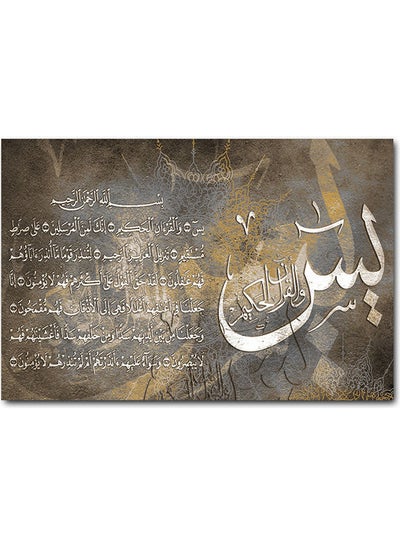 يس
والقرآن الحكيم
بِسْمِ اللَّهِ الرَّحْمَٰنِ الرَّحِيمِ
يسٓ ۝ وَالْقُرْءَانِ الْحَكِيمِ ۝ إِنَّكَ لَمِنَ الْمُرْسَلِينَ ۝ عَلَىٰ صِرَاطٍ
مُّسْتَقِيمٍ ۝ تَنزِيلَ الْعَزِيزِ الرَّحِيمِ ۝ لِتُنذِرَ قَوْمًا مَّا أُنذِرَ ءَابَاؤُهُمْ
فَهُمْ غَٰفِلُونَ ۝ لَقَدْ حَقَّ الْقَوْلُ عَلَىٰ أَكْثَرِهِمْ فَهُمْ لَا يُؤْمِنُونَ ۝ إِنَّا
جَعَلْنَا فِي أَعْنَٰقِهِمْ أَغْلَٰلًا فَهِيَ إِلَى الْأَذْقَانِ فَهُم مُّقْمَحُونَ ۝
وَجَعَلْنَا مِن بَيْنِ أَيْدِيهِمْ سَدًّا وَمِنْ خَلْفِهِمْ سَدًّا فَأَغْشَيْنَٰهُمْ فَهُمْ
لَا يُبْصِرُونَ ۝ وَسَوَاءٌ عَلَيْهِمْ ءَأَنذَرْتَهُمْ أَمْ لَمْ تُنذِرْهُمْ لَا يُؤْمِنُونَ ۝